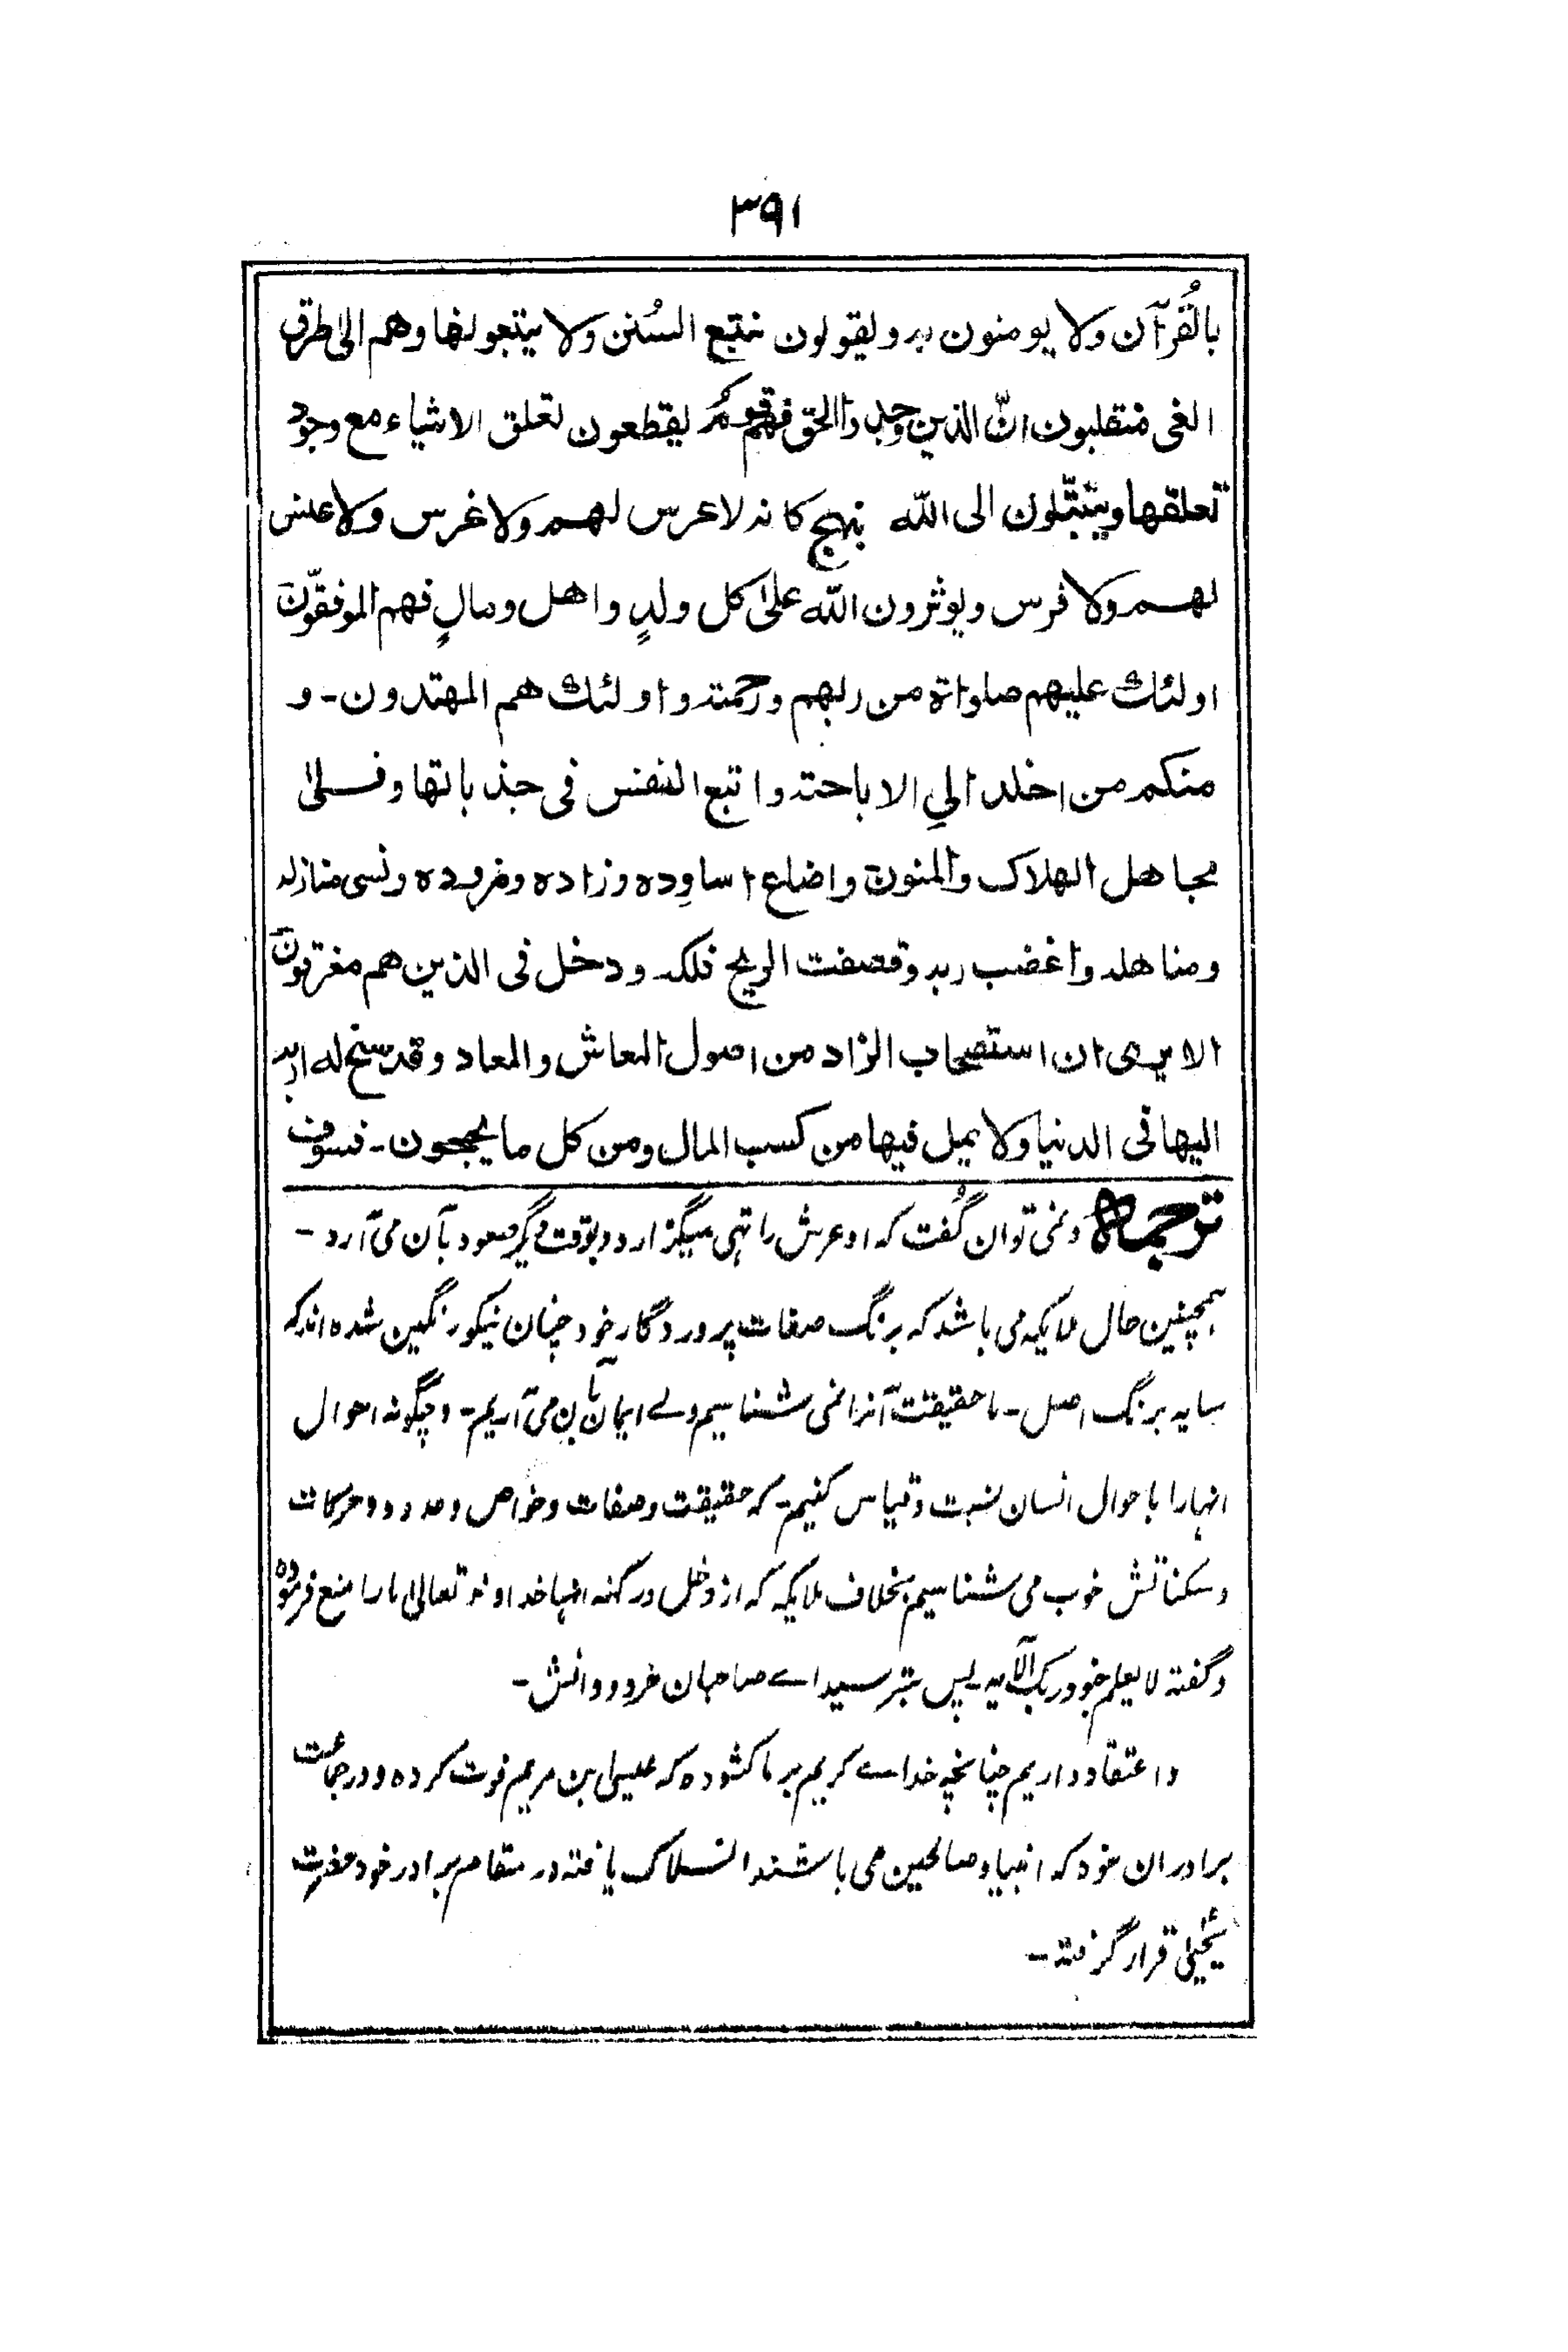 ۳۹۱
بالقُرآن ولا يومنون به ويقولون نتبع السُنن ولا يتبعونها وهم الىٰ طرق
الغى منقلبون انّ الذين وجدوا الحق فهم قوم يقطعون تعلق الاشياء مع وجود
تعلقها ويتبتّلون الى الله بنهج كانه لا عرس لهم ولا غرس ولا عنس
لهم ولا فرس ويوثرون الله علىٰ كل ولدٍ واهل ومالٍ فهم الموفقّون
اولئك عليهم صلواة من ربهم ورحمة واولئك هم المهتدون ـ و
منكم من اخلد الي الاباحة واتبع النفس فى جذباتها وفلىٰ
مجاهل الهلاك والمنون واضاع اساوِده وزاده ومزوده ونسى منازله
ومناهله واغضب ربه وقصفت الريح فلكه ودخل فى الذين هم مغرقون
الا يرى ان استصحاب الزاد من اصول المعاش والمعاد وقد سنح له ارب
اليها فى الدنيا ولا يميل فيها من كسب المال ومن كل ما يحجون ـ فسوف
ترجمه ونمی توان گُفت که او عرش را تهی میگزارد و بوقت دیگر صعود بآن می آرد ـ
ہمچنین حال ملایکه می باشد که برنگ صفات پروردگار خود چنان نیکو رنگین شده اند که
سایه برنگ اصل ـ ما حقیقت آنرا نمی شناسیم ولے ایمان بآن می آریم ـ و چگونه احوال
انہارا باحوال انسان نسبت و قیاس کنیم ـ که حقیقت و صفات و خواص و حدود و حرکات
و سکناتش خوب می شناسیم بخلاف ملایکه که از دخل در کنه انہا خداوند تعالیٰ مارا منع فرموده
و گفته لا یعلم جنود ربک الآیه پس بترسید اے صاحبان خرد و دانش ـ
و اعتقاد داریم چنانچه خداے کریم بر ما کشوده که عیسیٰ بن مریم فوت کرده و در جماعت
برادران خود که انبیا و صالحین می باشند انسلاک یافته در مقام برادر خود حضرت
یحییٰ قرار گرفته ـ